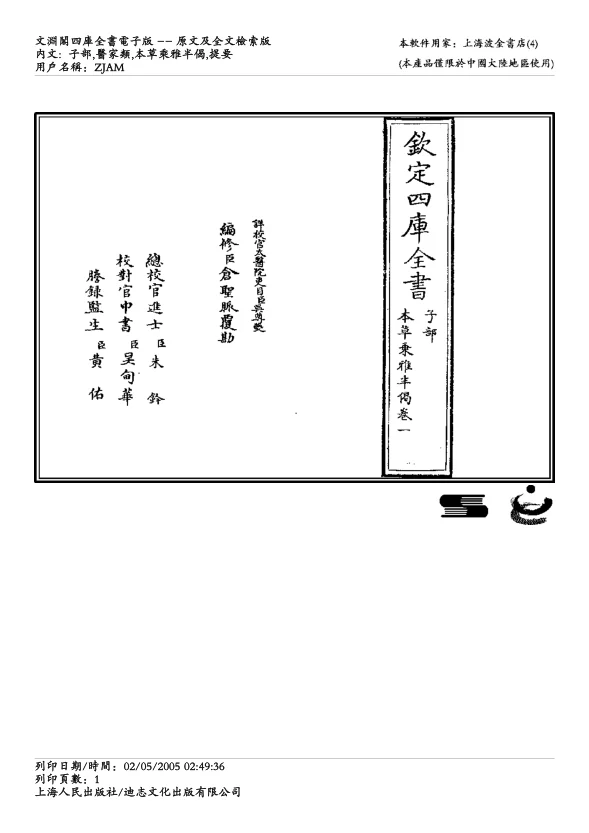 文淵閣四庫全書電子版 -- 原文及全文檢索版
內文: 子部,醫家類,本草乘雅半偈,提要
用戶名稱: ZJAM
本軟件用家: 上海波金書店(4)
(本產品僅限於中國大陸地區使用)
欽定四庫全書
子部
本草乘雅半偈卷一
詳校官太醫院吏目臣吳尊夔
編修臣倉聖脈覆勘
總校官進士臣朱鈐
校對官中書臣吳甸華
謄錄監生臣黃佑
列印日期/時間: 02/05/2005 02:49:36
列印頁數: 1
上海人民出版社/迪志文化出版有限公司